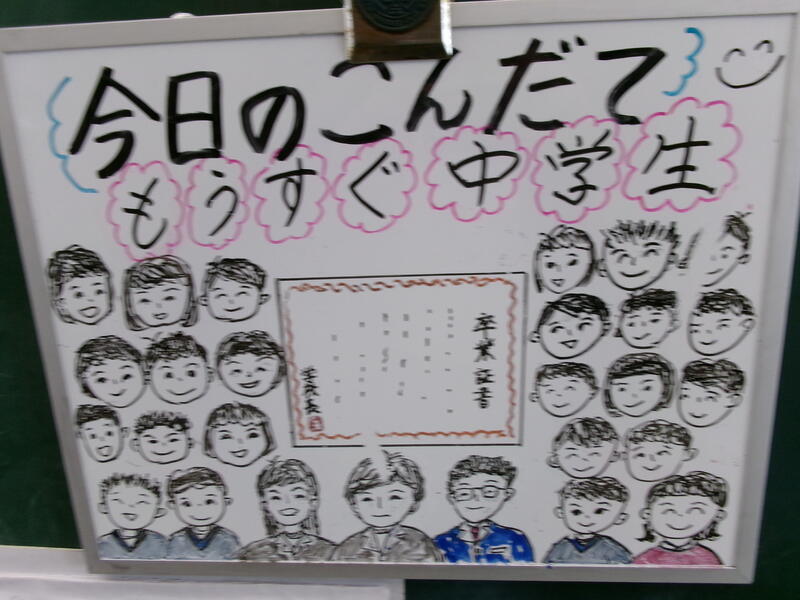 今日のこんだて
もうすぐ中学生
卒業証書
学校長